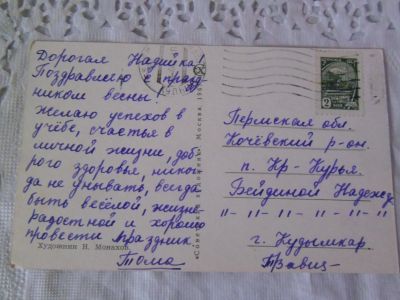 Дорогая Надийка!
Поздравляю с празд
ником весны!
Желаю успехов в
учёбе, счастье в
личной жизни, доб
рого здоровья, никог
да не унывать, всегда
быть весёлой, жизне
радостной и хорошо
провести праздник.
Тома
Художник Н. Монахов
«Советский художник» Москва
2
Пермская обл.
Кочёвский р-он.
п. Кр-Курья.
Бейдиной Надежд
"– "– "– "– "– "–
г. Кудымкар.